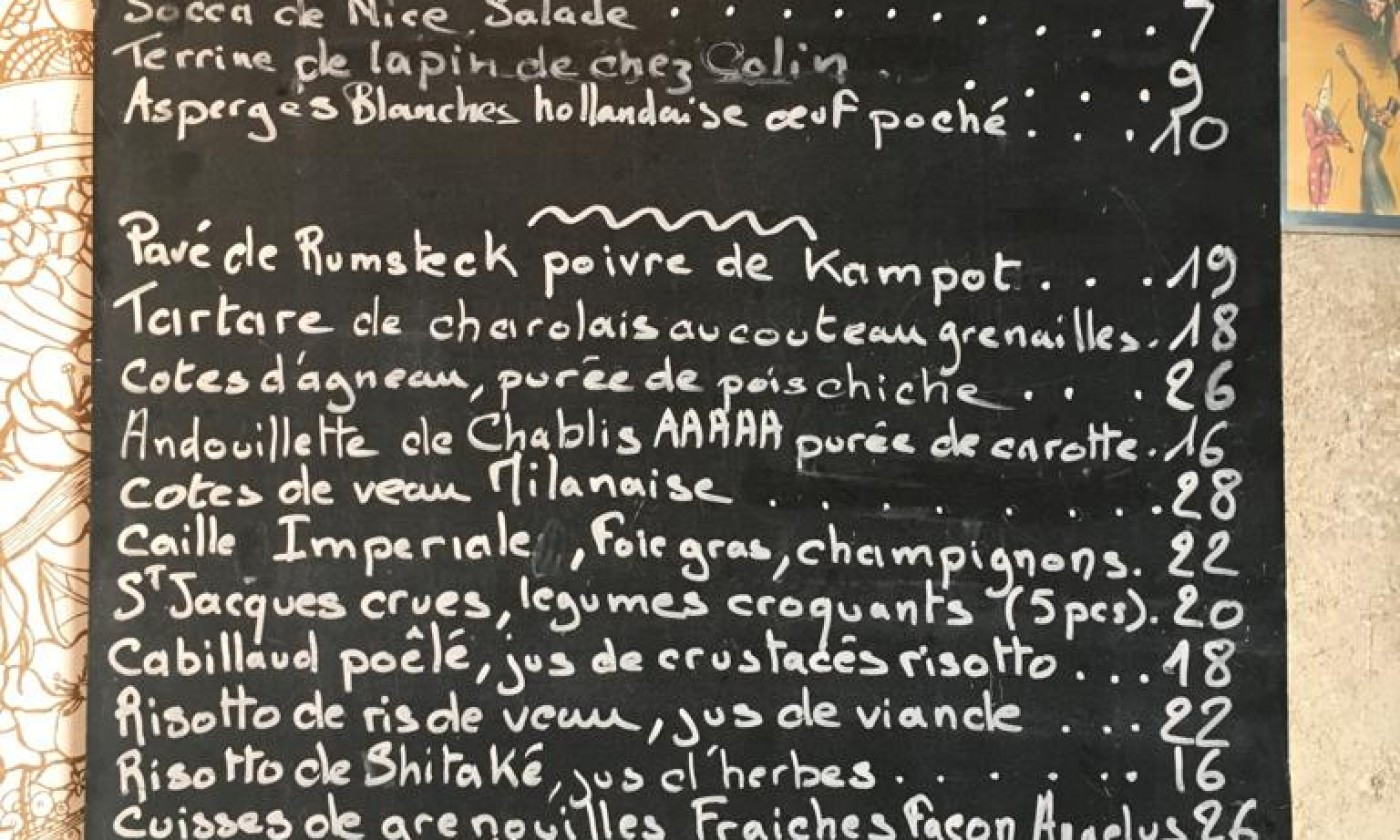 Socca de Nice Salade . . . . . . . . . . . 7
Terrine de lapin de chez Colin . . . . . 9
Asperges Blanches hollandaise œuf poché . . . 10
Pavé de Rumsteck poivre de Kampot . . . 19
Tartare de charolais au couteau grenailles . 18
Cotes d'agneau, purée de pois chiche . . . 26
Andouillette de Chablis AAAAA purée de carotte . 16
Cotes de veau Milanaise . . . . . . . . 28
Caille Imperiale , Foie gras, champignons. 22
ST Jacques crues, legumes croquants (5 pcs). 20
Cabillaud poêlé, jus de crustacés risotto . . . 18
Risotto de ris de veau, jus de viande . . . 22
Risotto de Shitaké, jus d'herbes . . . . . . 16
Cuisses de grenouilles Fraiches Façon Angelus 26